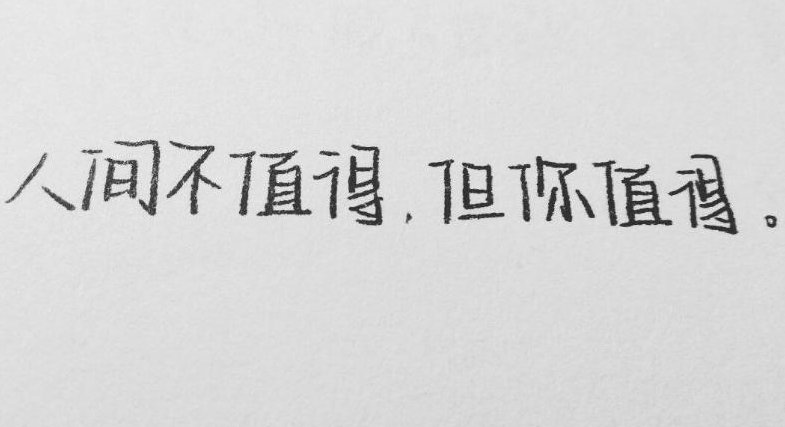 人间不值得,但你值得。